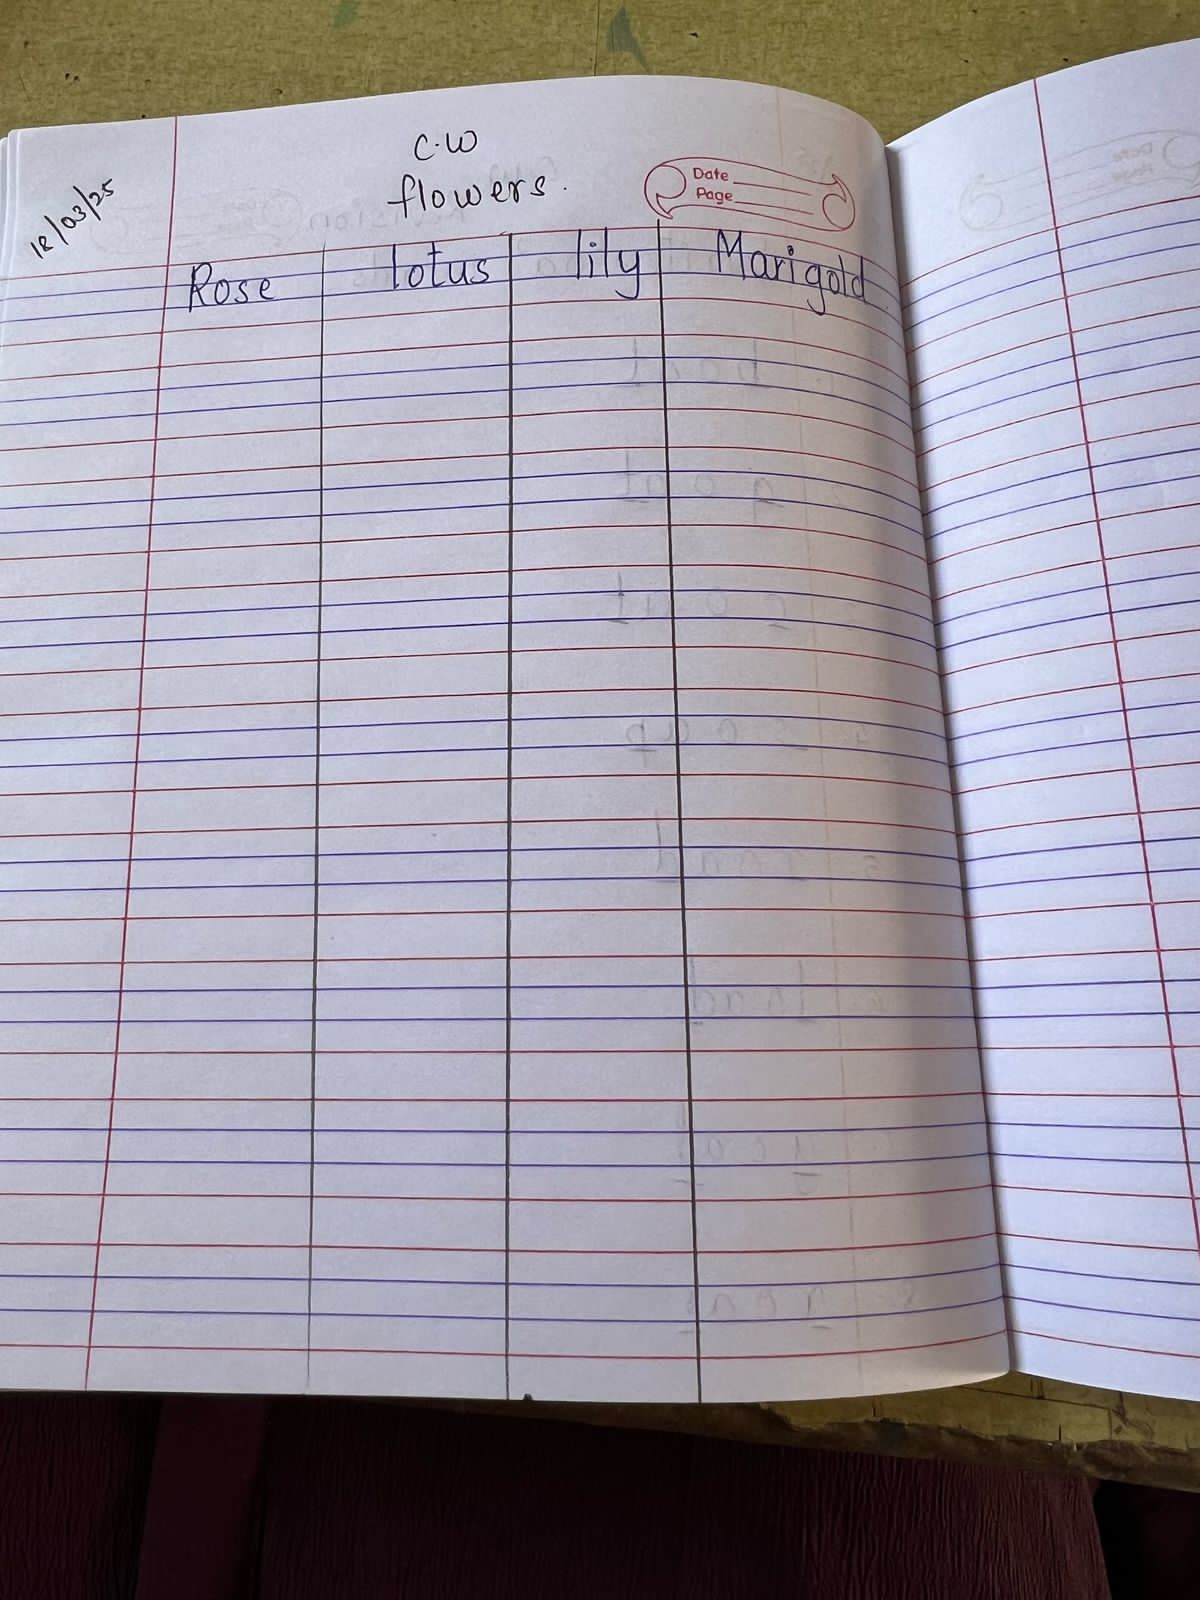 C.W
flowers.
18/03/25
Date
Page
Rose lotus lily Marigold